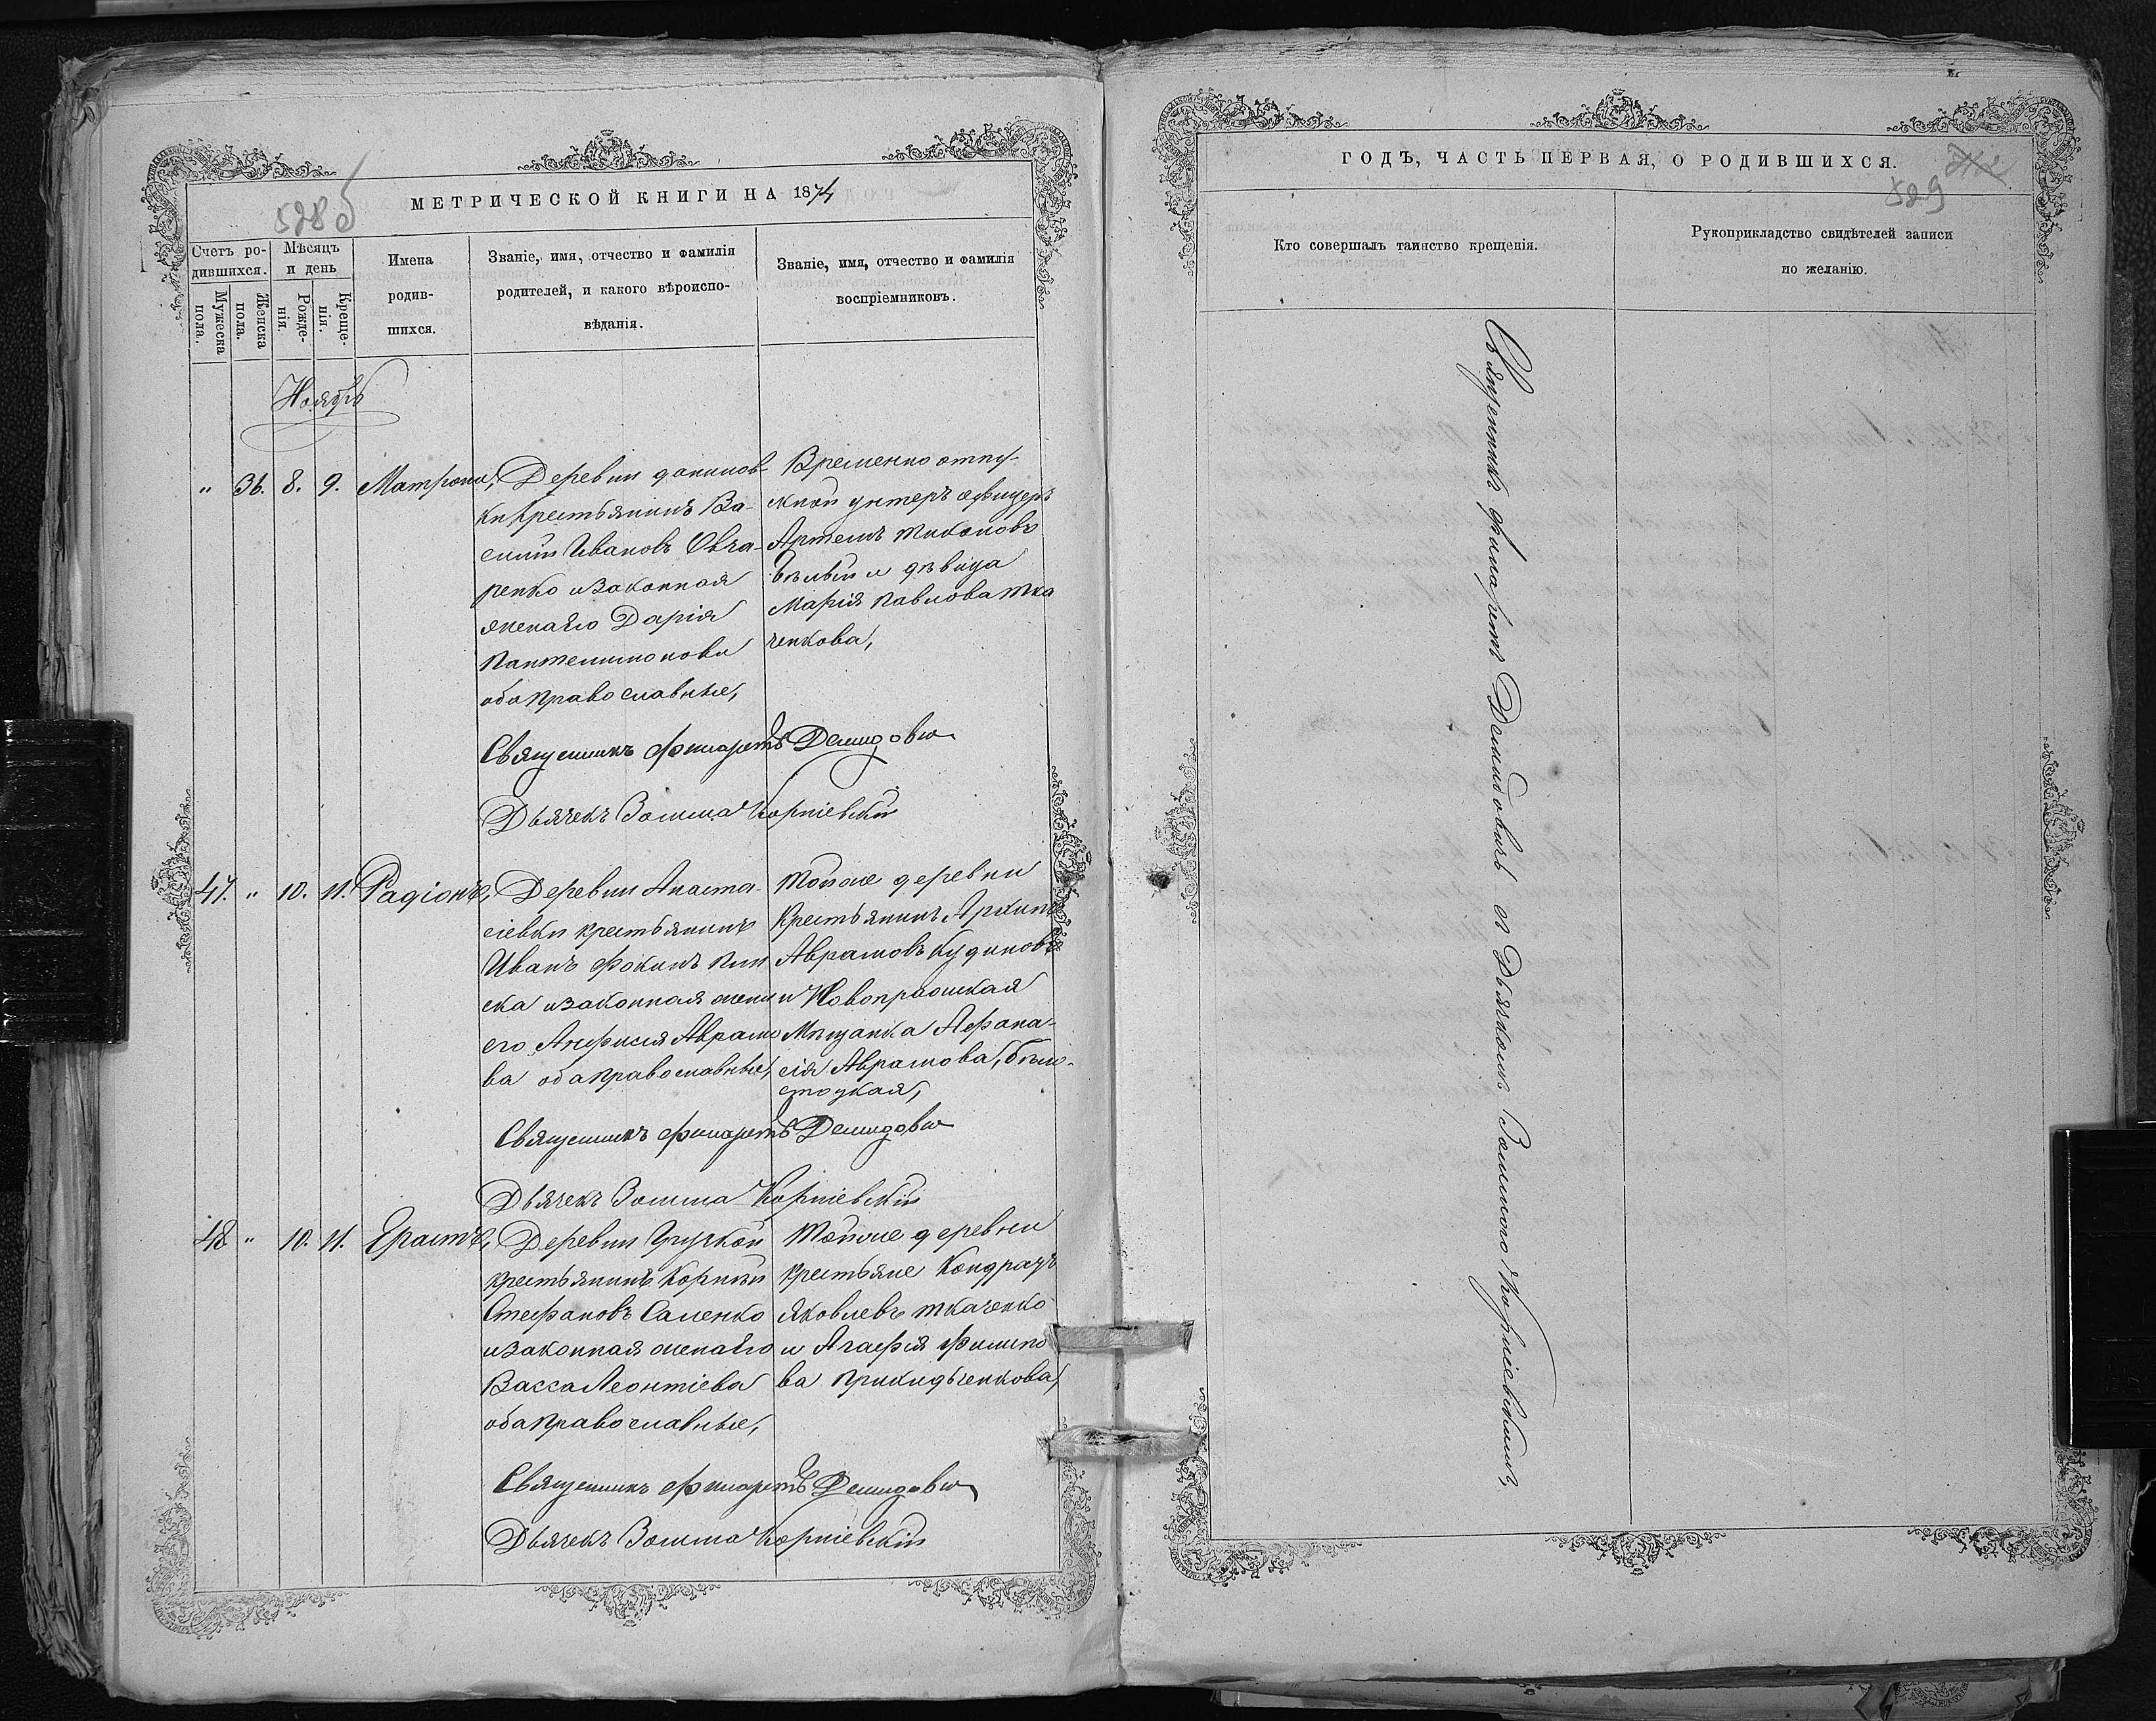 528 б
МЕТРИЧЕСКОЙ КНИГИ НА 1874
Счетъ ро-
дившихся.
Мѣсяцъ
и день
Мужеска
пола.
Женска
пола.
Рожде-
нія.
Креще-
нія.
Имена
родив-
шихся.
Званіе, имя, отчество и фамилія
родителей, и какого вѣроиспо-
вѣданія.
Званіе, имя, отчество и фамилія
воспріемниковъ.
Ноябрь
" 36. 8. 9. Матрона,
Деревни
крестьянинъ Ва-
силій Ивановъ Овча-
ренко и законная
жена его Дарія
Пантелимонова
оба православные,
Временно отпу-
скной унтеръ офицеръ
Артемъ Тихоновъ
Бѣлый и дѣвица
Марія Павлова Тка
ченкова,
Священникъ Филаретъ Демидовъ
Дьячекъ Зосима Корніевскій
47. " 10. 11. Радіонъ,
Деревни Анаста-
сіевки крестьянинъ
Иванъ Фокинъ
и законная жена
его Анфисія Авраамо
ва оба православные,
Тойже деревни
Крестьянинъ Архипъ
Аврамовъ Кудиновъ
и Новопражская
Мѣщанка Афана-
сія Аврамова, Бѣло-
стоцкая,
Священникъ Филаретъ Демидовъ
Дьячекъ Зосима Корніевскій
48. " 10. 11. Ерастъ,
Деревни
крестьянинъ Корнѣй
Стефановъ Саленко
и законная жена его
Васса Леонтіева
оба православные,
Тойже деревни
крестьяне Кондратъ
Яковлевъ Ткаченко
и Агафія Филипо
ва
Священникъ Филаретъ Демидовъ
Дьячекъ Зосима Корніевскій
ГОДЪ, ЧАСТЬ ПЕРВАЯ, О РОДИВШИХСЯ.
529
Кто совершалъ таинство крещенія.
Рукоприкладство свидѣтелей записи
по желанію.
Священникъ Филаретъ Демидовичъ съ Дьячкомъ Зосимою Корніевскимъ,